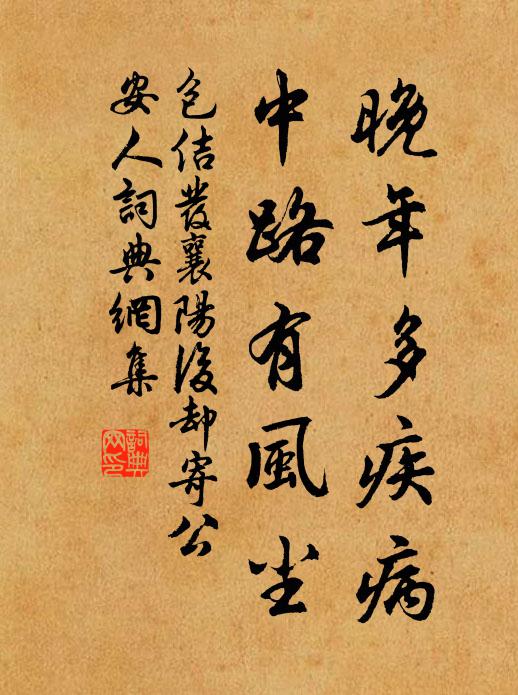 晚年多疾病
中路有風尘
包佶發襄陽後却寄公
安人詞典網集
詞典
网印